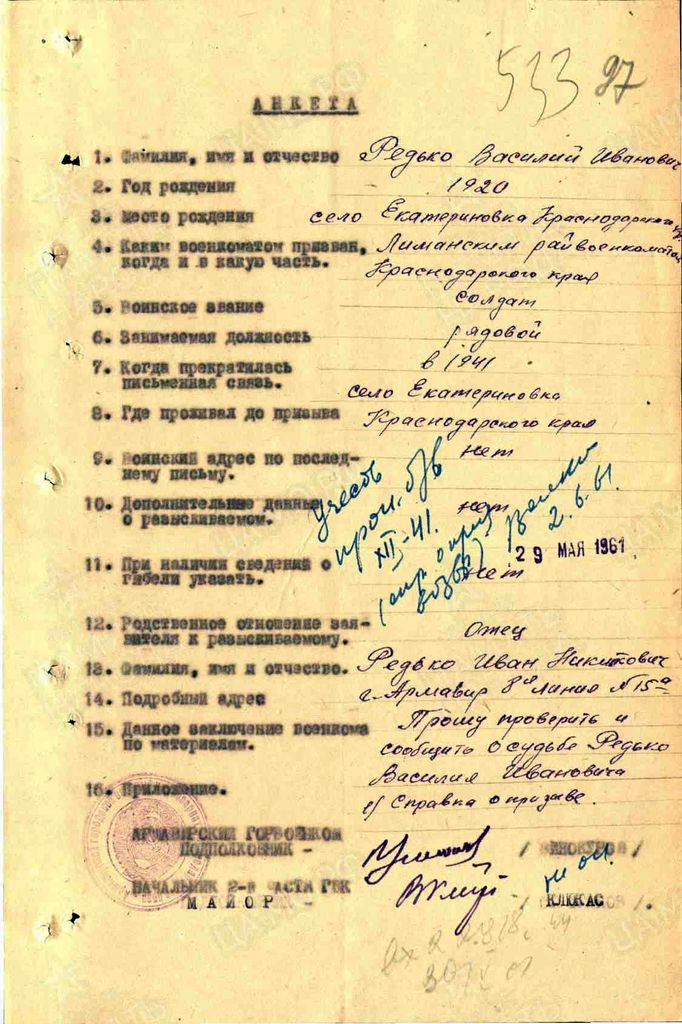 533 97
АНКЕТА
1. Фамилия, имя и отчество Редько Василий Иванович
2. Год рождения 1920
3. Место рождения село Екатериновка Краснодарского
4. Каким военкоматом призван, Лиманским райвоенкоматом
когда и в какую часть. Краснодарского края
5. Воинское звание солдат
6. Занимаемая должность рядовой
7. Когда прекратилась в 1941
письменная связь.
село Екатериновка
8. Где проживал до призыва Краснодарского края
9. Воинский адрес по послед- нет
нему письму.
10. Дополнительные данные нет
о разыскиваемом.
учесть
проп. б/в
XII-41.
2.6.61.
29 МАЯ 1961
11. При наличии сведений о нет
гибели указать.
12. Родственное отношение зая- Отец
вителя к разыскиваемому.
13. Фамилия, имя и отчество. Редько Иван Никитович
14. Подробный адрес г. Армавир 8ая линия №15а
15. Данное заключение военкома Прошу проверить и
по материалам. сообщить о судьбе Редько
Василия Ивановича
16. Приложение. 1) Справка о призыве.
АРМАВИРСКИЙ ГОРВОЕНКОМ
ПОДПОЛКОВНИК - / ВИНОКУРОВ /
НАЧАЛЬНИК 2-й ЧАСТИ ГВК
МАЙОР - / КЛЮКАС /.